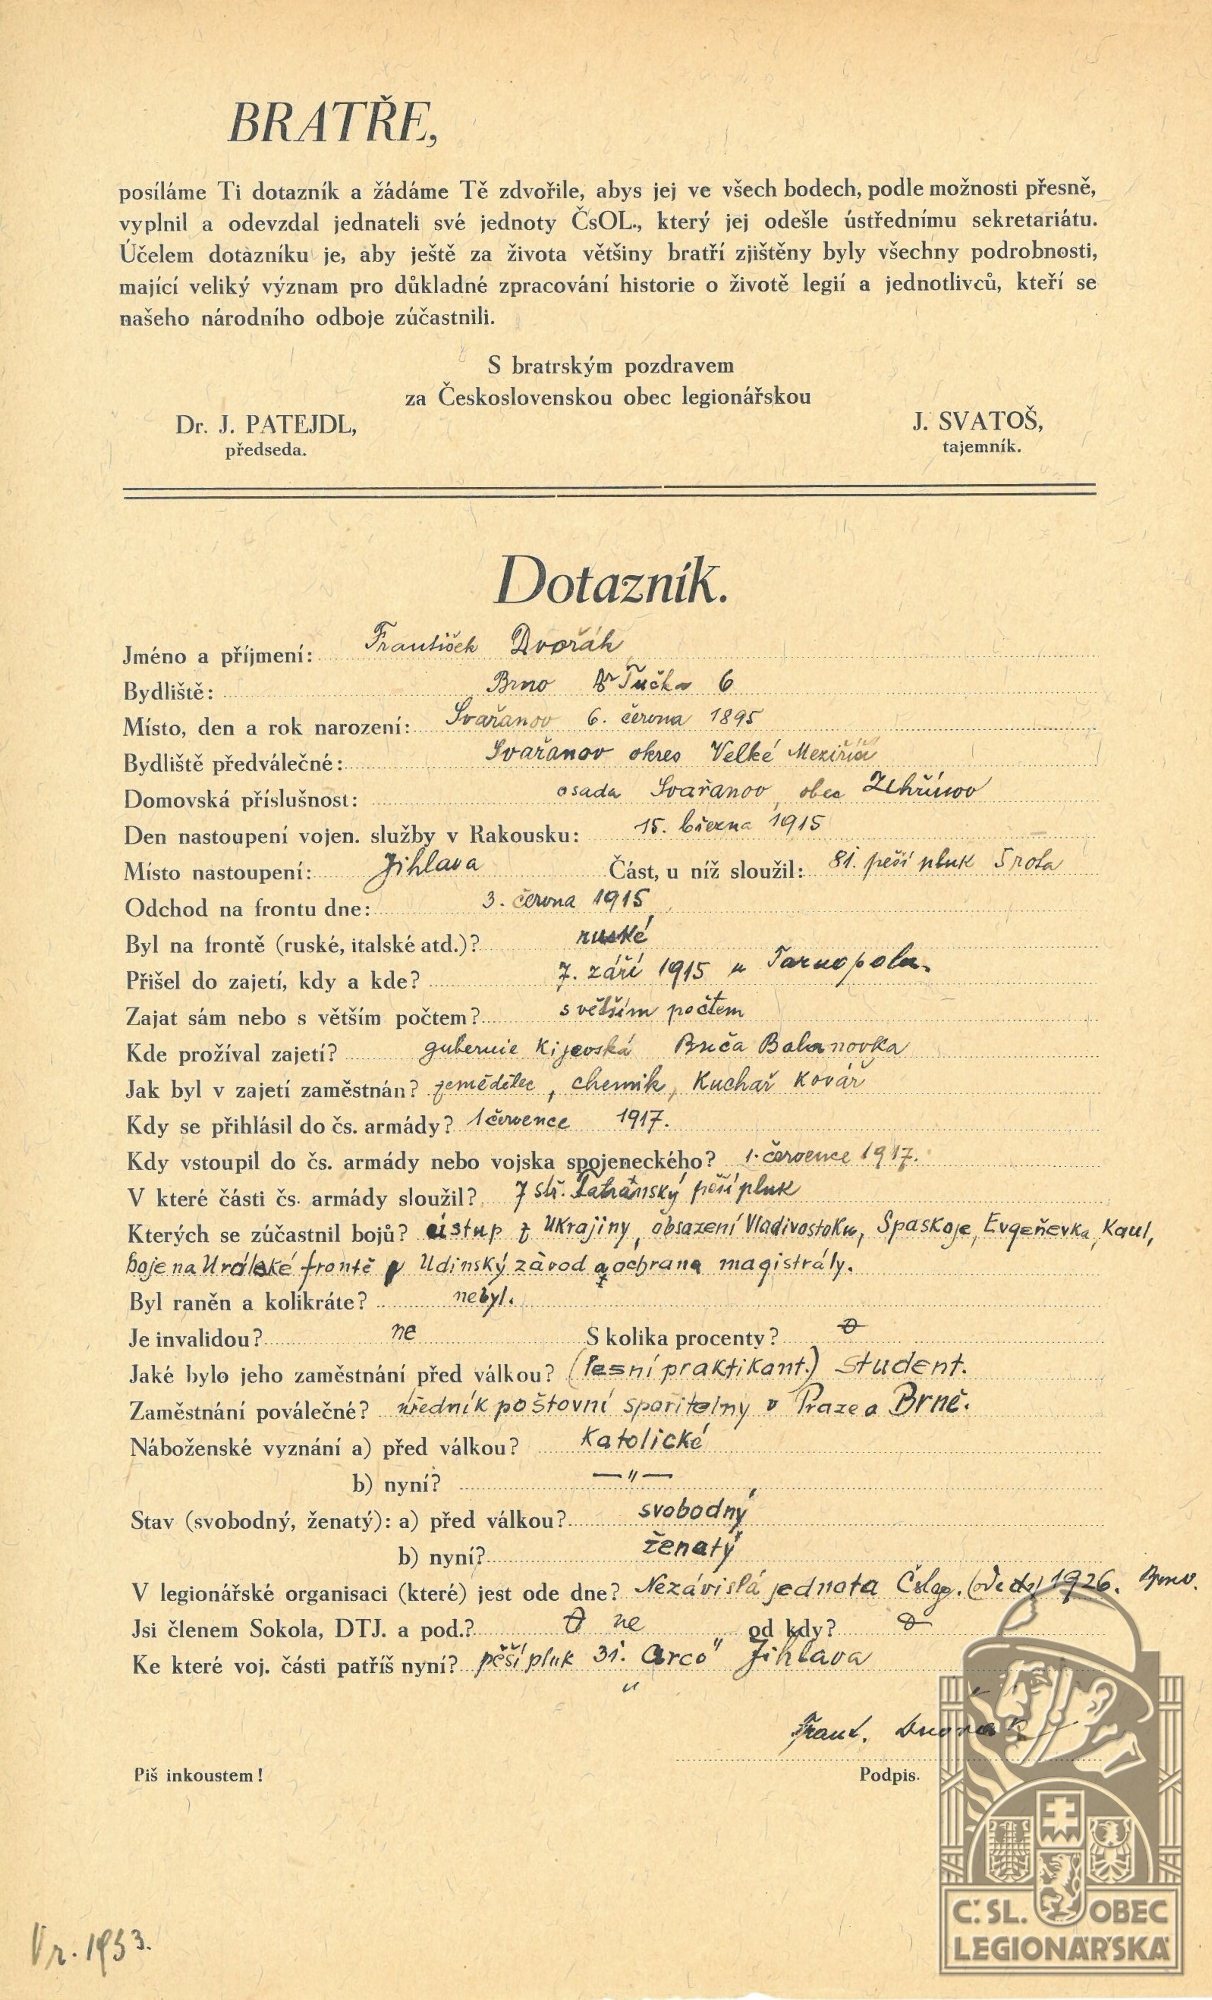 BRATŘE,
posíláme Ti dotazník a žádáme Tě zdvořile, abys jej ve všech bodech, podle možnosti přesně,
vyplnil a odevzdal jednateli své jednoty ČsOL., který jej odešle ústřednímu sekretariátu.
Účelem dotazníku je, aby ještě za života většiny bratří zjištěny byly všechny podrobnosti,
mající veliký význam pro důkladné zpracování historie o životě legií a jednotlivců, kteří se
našeho národního odboje zúčastnili.
S bratrským pozdravem
za Československou obec legionářskou
Dr. J. PATEJDL,
předseda.
J. SVATOŠ,
tajemník.
Dotazník.
Jméno a příjmení: František Dvořák
Bydliště: Brno Tučka 6
Místo, den a rok narození: Svařanov 6. června 1895
Bydliště předválečné: Svařanov okres Velké Meziříčí
Domovská příslušnost: osada Svařanov obec
Den nastoupení vojen. služby v Rakousku: 15. března 1915
Místo nastoupení: Jihlava Část, u níž sloužil: 81. pěší pluk 5 rota
Odchod na frontu dne: 3. června 1915
Byl na frontě (ruské, italské atd.)? ruské
Přišel do zajetí, kdy a kde? 7. září 1915 u Tarnopola.
Zajat sám nebo s větším počtem? s větším počtem
Kde prožíval zajetí? gubernie Kijevská Buča Balanovka
Jak byl v zajetí zaměstnán? zemědělec, chemik, Kuchař Kovář
Kdy se přihlásil do čs. armády? 1 července 1917.
Kdy vstoupil do čs. armády nebo vojska spojeneckého? 1. července 1917.
V které části čs. armády sloužil? 7 stř. Tatranský pěší pluk
Kterých se zúčastnil bojů? ústup z Ukrajiny, obsazení Vladivostoku, Spaskoje, Evgeňevka, Kaul,
boje na Uralské frontě Udinský závod a ochrana magistrály.
Byl raněn a kolikráte? nebyl.
Je invalidou? ne S kolika procenty? 0
Jaké bylo jeho zaměstnání před válkou? (lesní praktikant.) student.
Zaměstnání poválečné? úředník poštovní spořitelny v Praze a Brně.
Náboženské vyznání a) před válkou? Katolické
b) nyní? —"—
Stav (svobodný, ženatý): a) před válkou? svobodný
b) nyní? ženatý
V legionářské organisaci (které) jest ode dne? Nezávislá jednota Čsleg. (ode dne) 1926. Brno.
Jsi členem Sokola, DTJ. a pod.? 0 ne od kdy? 0
Ke které voj. části patříš nyní? pěší pluk 31. „Arco" Jihlava
Frant. Dvořák
Piš inkoustem!
Podpis.
V r. 1933.
Č. SL. OBEC
LEGIONÁŘSKÁ